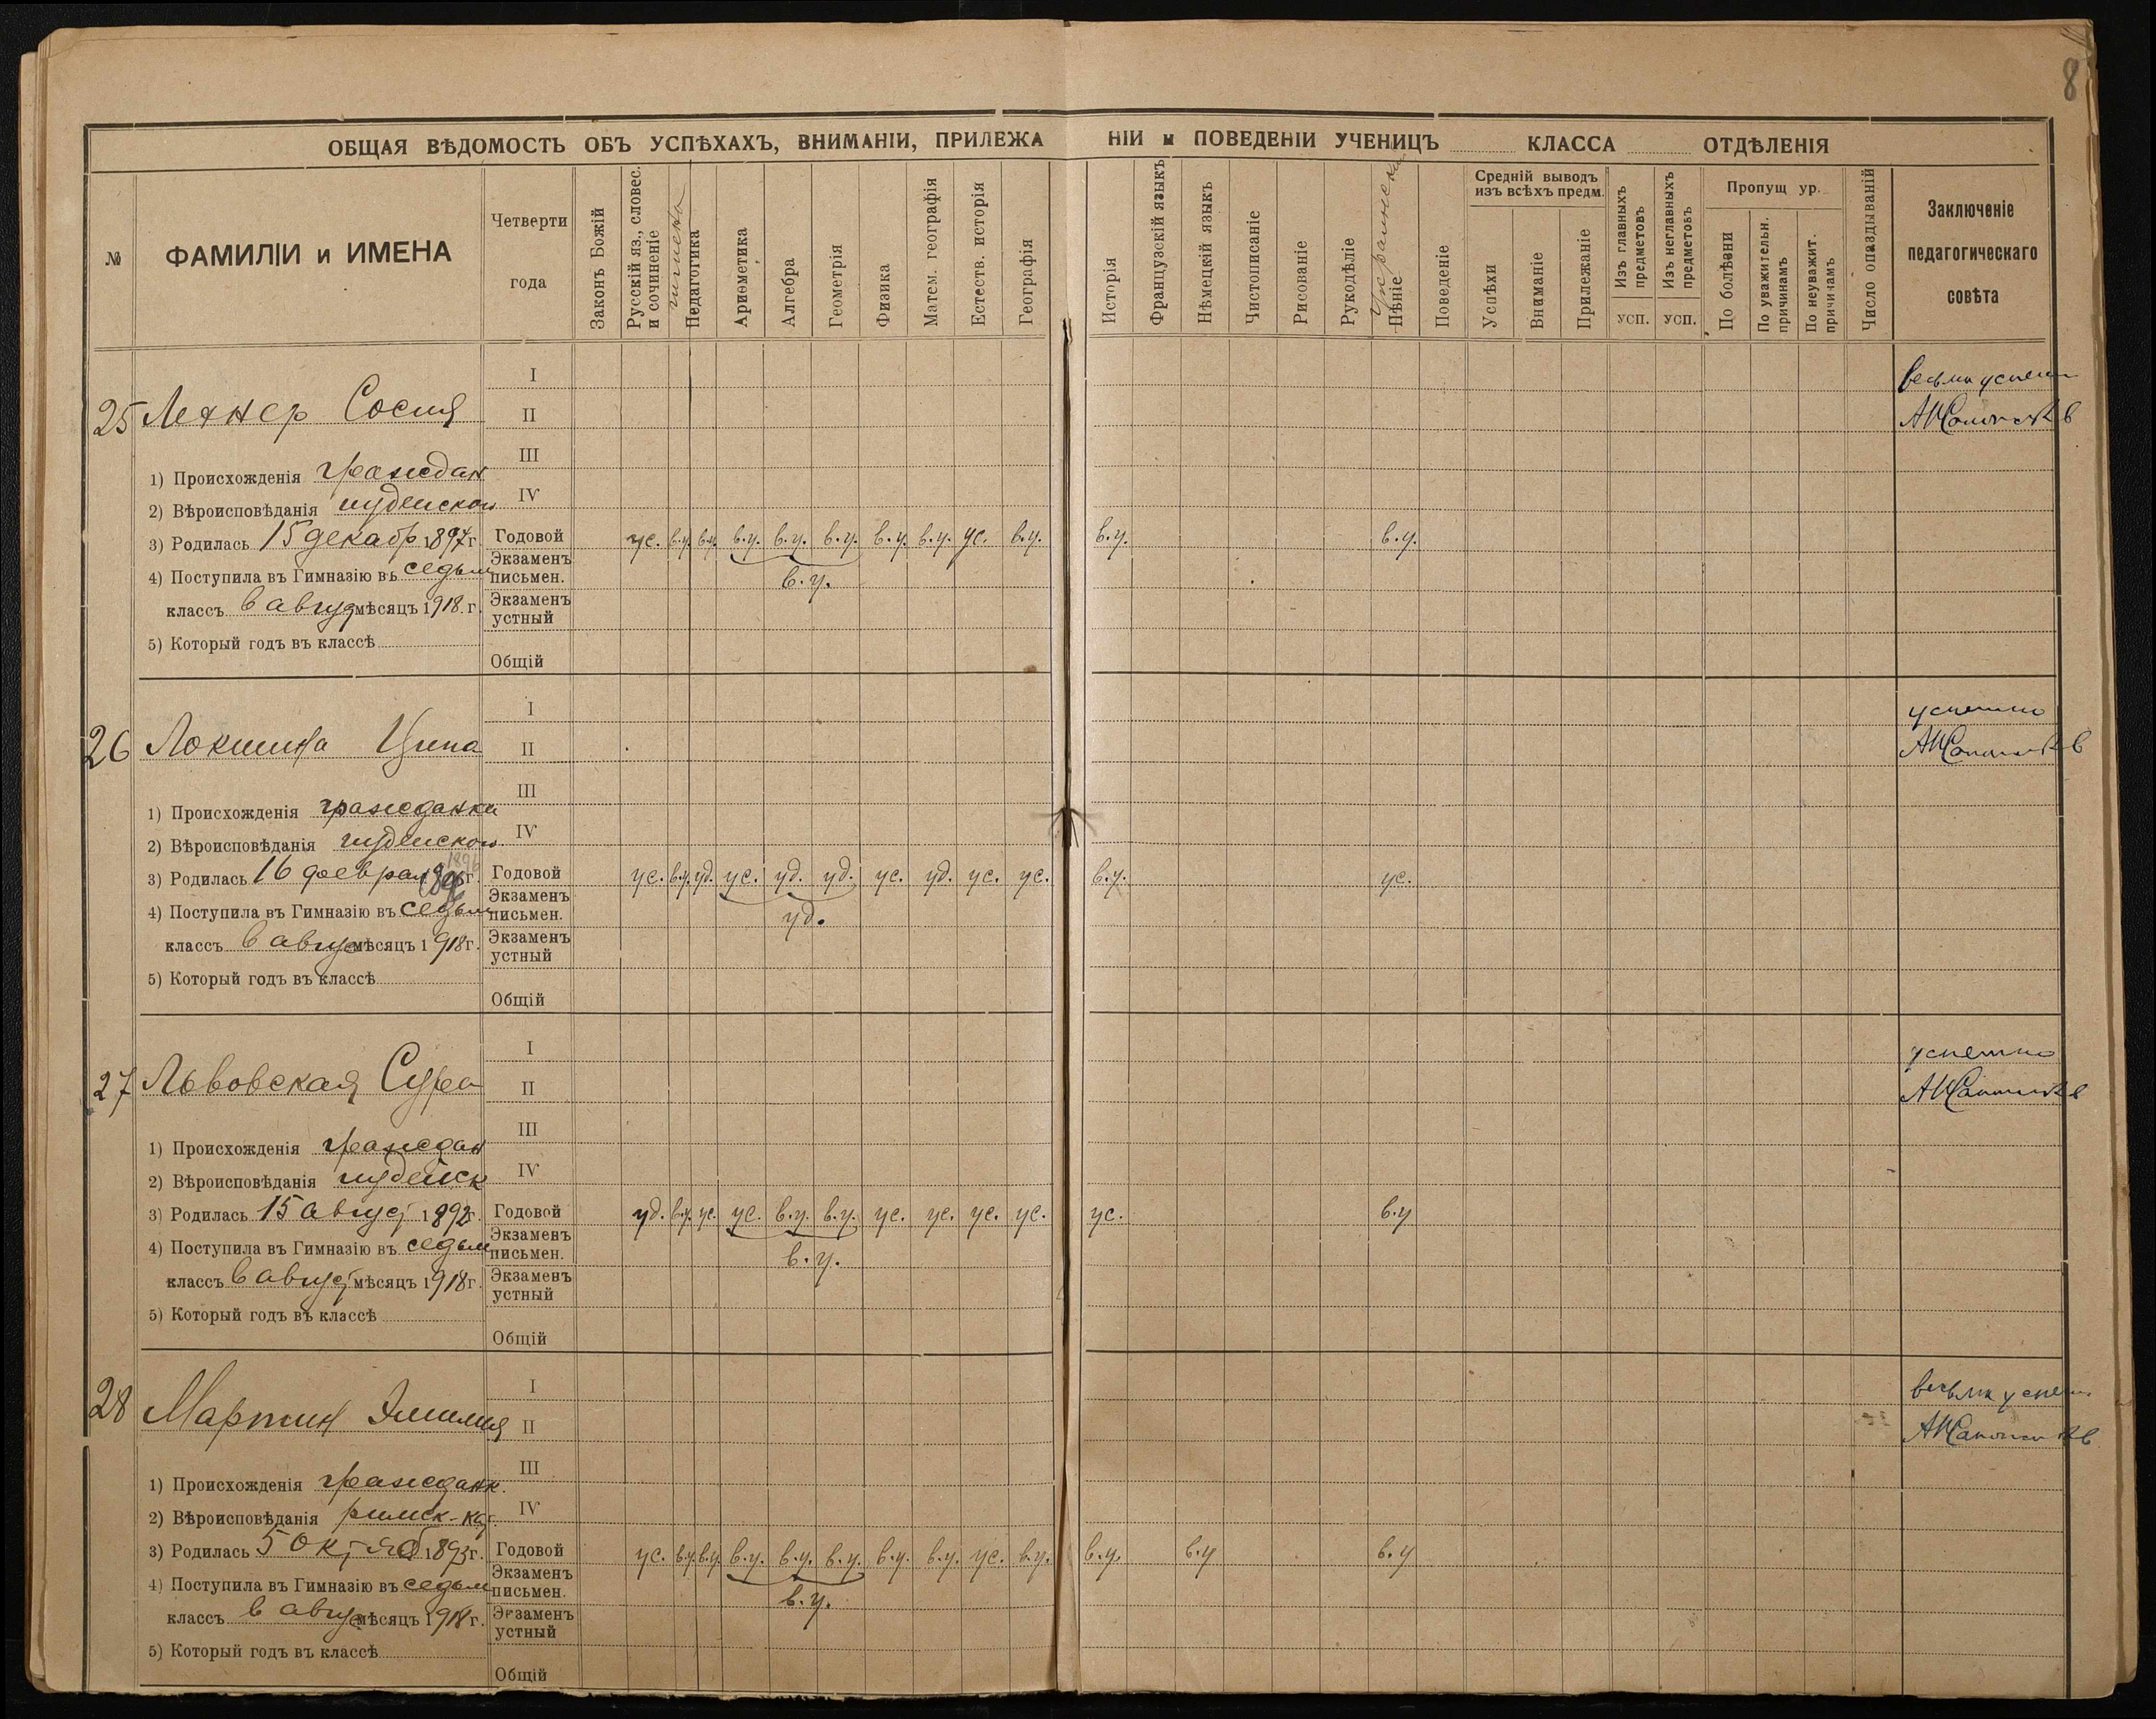 8
ОБЩАЯ ВѢДОМОСТЬ ОБЪ УСПѢХАХЪ, ВНИМАНІИ, ПРИЛЕЖА НІИ и ПОВЕДЕНІИ УЧЕНИЦЪ КЛАССА ОТДѢЛЕНІЯ
№
ФАМИЛІИ и ИМЕНА
Четверти
года
Законъ Божій
Русскій яз., словес.
и сочиненіе
гигиена
Педагогика
Ариѳметика
Алгебра
Геометрія
Физика
Матем. географія
Естеств. исторія
Географія
Исторія
Французскій языкъ
Нѣмецкій языкъ
Чистописаніе
Рисованіе
Рукодѣліе
Пѣніе
Поведеніе
Средній выводъ
изъ всѣхъ предм.
Успѣхи
Вниманіе
Прилежаніе
Изъ главныхъ
предметовъ
усп.
Изъ неглавныхъ
предметовъ
усп.
Пропущ ур.
По болѣзни
По уважительн.
причинамъ
По неуважит.
причинамъ
Число опаздываній
Заключеніе
педагогическаго
совѣта
25 София
I
весьма успешн
II
III
1) Происхожденія граждан
IV
2) Вѣроисповѣданія иудейской
3) Родилась 15 декабр 1897 г.
Годовой ус. в.у. в.у. в.у. в.у. в.у. в.у. в.у. ус. в.у. в.у. в.у.
4) Поступила въ Гимназію въ седьм
Экзаменъ
письмен. в.у.
классъ в авгус мѣсяцъ 1918 г.
Экзаменъ
устный
5) Который годъ въ классѣ
Общій
26 Локшина Ципа
I
успешно
II
III
1) Происхожденія гражданка
IV
2) Вѣроисповѣданія иудейской
1896
3) Родилась 16 феврал г.
Годовой ус. в.у. уд. ус. уд. уд. ус. уд. ус. ус. в.у. ус.
4) Поступила въ Гимназію въ седьм
Экзаменъ
письмен. уд.
классъ в авгус мѣсяцъ 1918 г.
Экзаменъ
устный
5) Который годъ въ классѣ
Общій
27 Львовская Сура
I
успешно
II
III
1) Происхожденія граждан
IV
2) Вѣроисповѣданія иудейск
3) Родилась 15 август 1892 г.
Годовой уд. в.у. ус. ус. в.у. в.у. ус. ус. ус. ус. ус. в.у
4) Поступила въ Гимназію въ седьм
Экзаменъ
письмен. в.у.
классъ в август мѣсяцъ 1918 г.
Экзаменъ
устный
5) Который годъ въ классѣ
Общій
28 Мартин Эмилия
I
весьма успеш
II
III
1) Происхожденія гражданк.
IV
2) Вѣроисповѣданія римск-кат.
3) Родилась 5 октяб 1893 г.
Годовой ус. в.у. в.у. в.у. в.у. в.у. в.у. в.у. ус. в.у. в.у. в.у в.у
4) Поступила въ Гимназію въ седьм
Экзаменъ
письмен. в.у.
классъ в авгус мѣсяцъ 1918 г.
Экзаменъ
устный
5) Который годъ въ классѣ
Общій